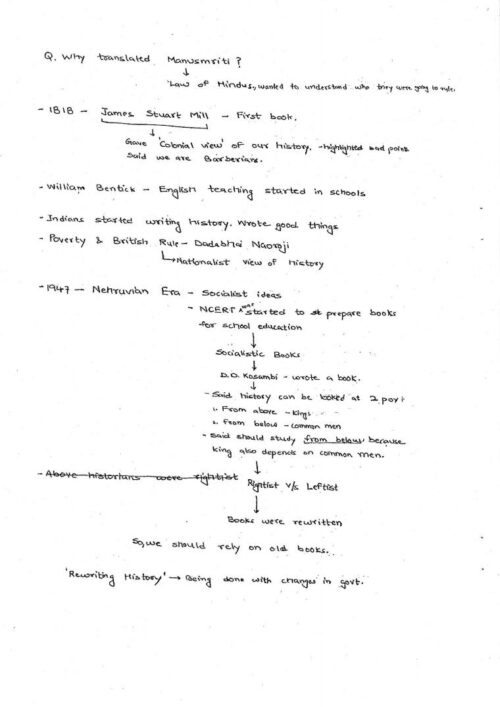 Q. Why translated Manusmriti?
↓
'Law of Hindus, wanted to understand who they were going to rule.
- 1818 - James Stuart Mill - First book.
↓
Gave 'Colonial view' of our history. - highlighted bad points
Said we are Barberians.
- William Bentick - English teaching started in schools
- Indians started writing history. Wrote good things
- Poverty & British Rule - Dadabhai Naoroji
↳ Nationalist view of history
- 1947 - Nehruvian Era - Socialist ideas
- NCERT was started to prepare books
for school education
↓
Socialistic Books
↓
D.D. Kosambi - wrote a book.
↓
- Said history can be looked at 2 part
1. From above - kings
2. From below - common men
- Said should study from below because
king also depends on common men.
↓
- Above historians were rightist Rightist v/s Leftist
↓
Books were rewritten
So, we should rely on old books.
'Rewriting History' → Being done with changes in govt.